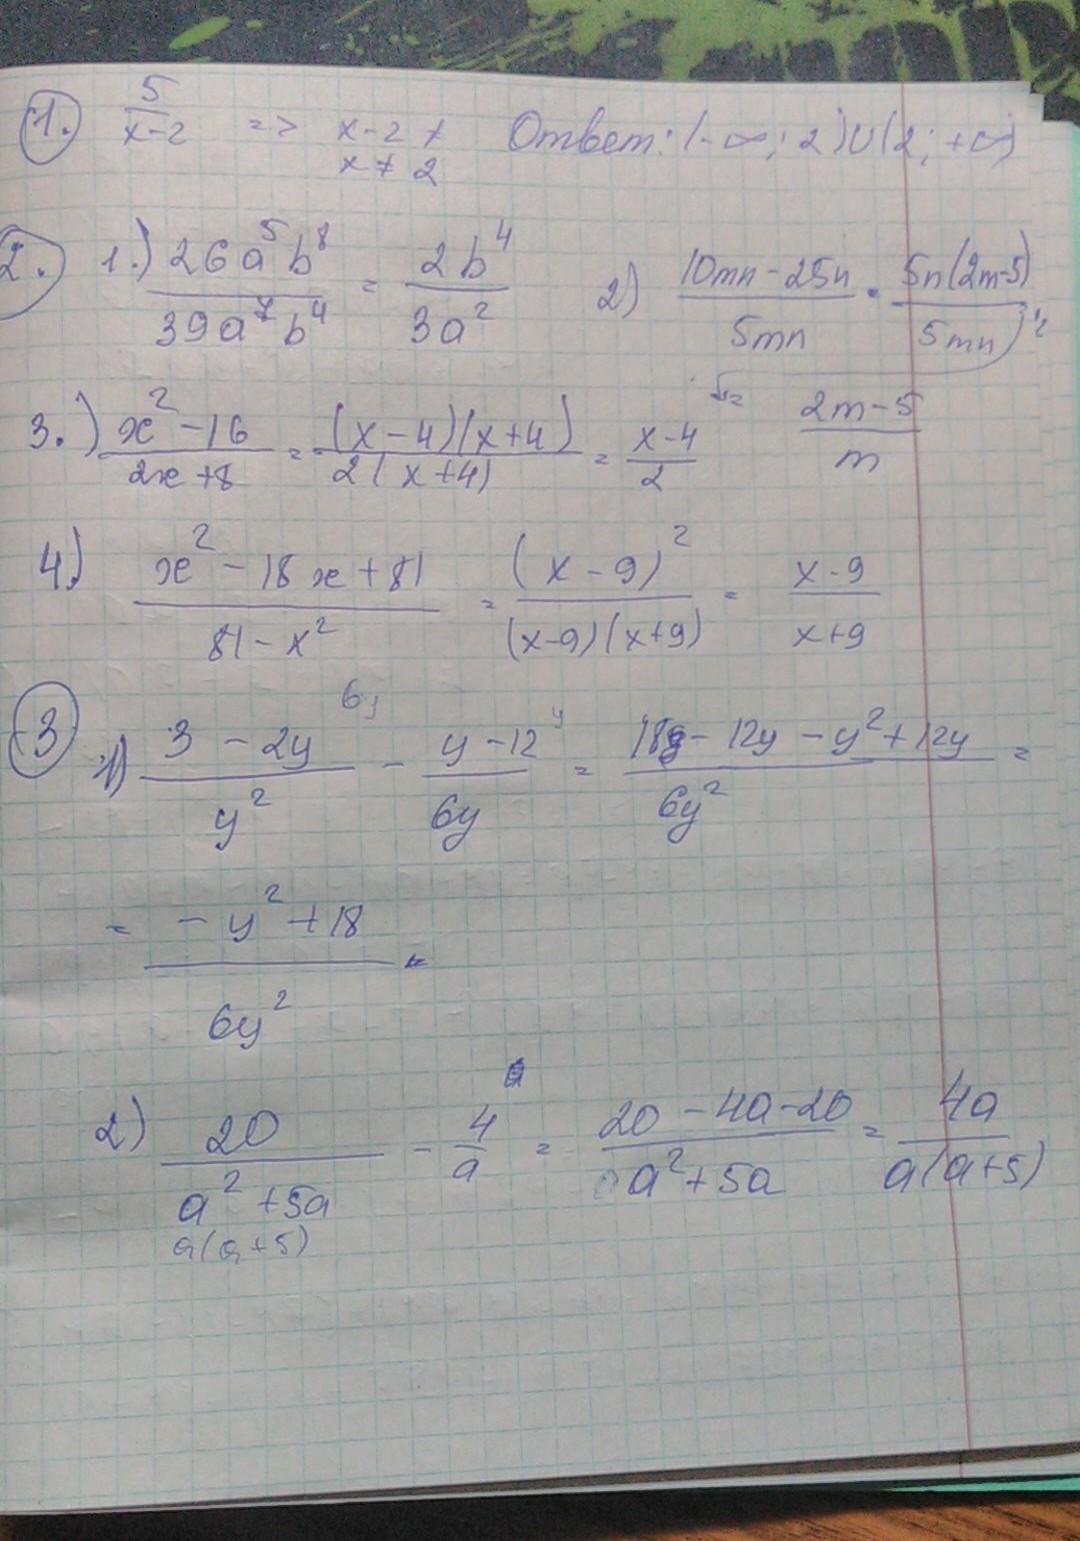 1. 5/(x-2) => x-2 ≠ Ответ: (-∞; 2)U(2; +∞)
x ≠ 2
2. 1.) 26a⁵b⁸/39a⁷b⁴ = 2b⁴/3a² 2) (10mn-25n)/5mn = 5n(2m-5)/5mn
= (2m-5)/m
3.) (x²-16)/(2x+8) = (x-4)(x+4)/2(x+4) = (x-4)/2
4.) (x²-18x+81)/(81-x²) = (x-9)²/(x-9)(x+9) = (x-9)/(x+9)
3 1) (3-2y)/y² 6y - (y-12)/6y y = (18y-12y-y²+12y)/6y² =
= (-y²+18)/6y² =
2) 20/(a²+5a) - 4/a = (20-4a-20)/(a²+5a) = 4a/a(a+5)
a(a+5)